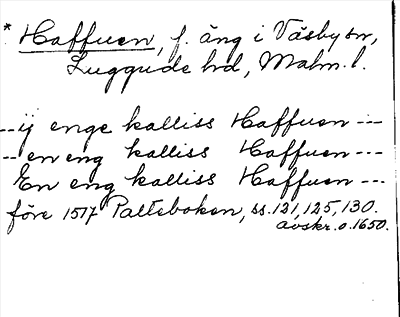 * Haffuen, f. äng i Väsby sn,
Luggude hd, Malm. l.
-- ij enge kalliss Haffuen ---
-- en eng kalliss Haffuen ---
En eng kalliss Haffuen ---
före 1517 Palteboken, ss. 121, 125, 130.
avskr. o. 1650.